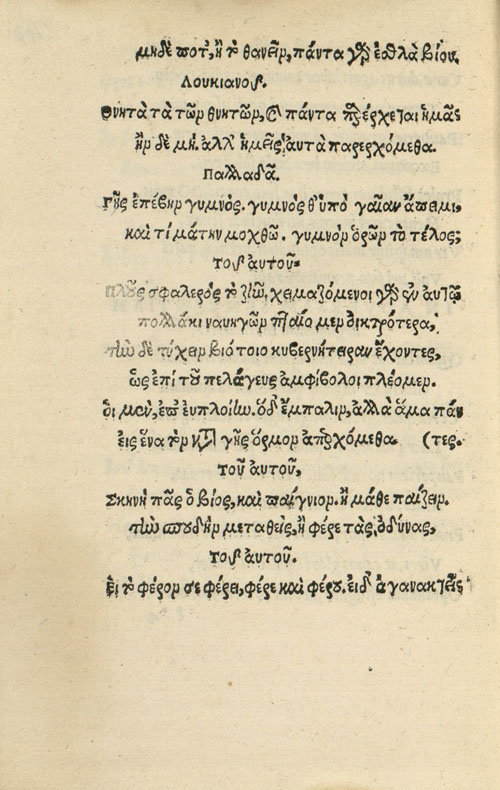 μηδέ ποτ', ἢ τὸ θανεῖν, πάντα γὰρ ἐσθλὰ βίου.
Λουκιανοῦ.
Θνητὰ τὰ τῶν θνητῶν, καὶ πάντα παρέρχεται ἡμᾶς
ἢν δὲ μὴ, ἀλλ' ἡμεῖς αὐτὰ παρερχόμεθα.
Παλλαδᾶ.
Γῆς ἐπέβην γυμνός. γυμνὸς θ' ὑπὸ γαῖαν ἄπειμι,
καὶ τί μάτην μοχθῶ. γυμνὸν ὁρῶν τὸ τέλος;
τοῦ αὐτοῦ.
Πλοῦς σφαλερὸς τὸ ζῆν, χειμαζόμενοι γὰρ ἐν αὐτῷ
πολλάκι ναυηγῶν πταίομεν οἰκτρότερα,
τὴν δὲ τύχην βιότοιο κυβερνήτειραν ἔχοντες,
ὡς ἐπὶ τοῦ πελάγευς ἀμφίβολοι πλέομεν.
οἱ μὲν, ἐπ' εὐπλοίην. οἱ δ' ἔμπαλιν, ἀλλὰ ἅμα πάν
εἰς ἕνα τὸν κατὰ γῆς ὅρμον ἀπερχόμεθα. (τες.
τοῦ αὐτοῦ,
Σκηνὴ πᾶς ὁ βίος, καὶ παίγνιον. ἢ μάθε παίζειν.
τὴν σπουδὴν μεταθεὶς, ἢ φέρε τὰς ὀδύνας,
τοῦ αὐτοῦ.
Εἰ τὸ φέρον σε φέρει, φέρε καὶ φέρου. εἰ δ' ἀγανακτεῖς